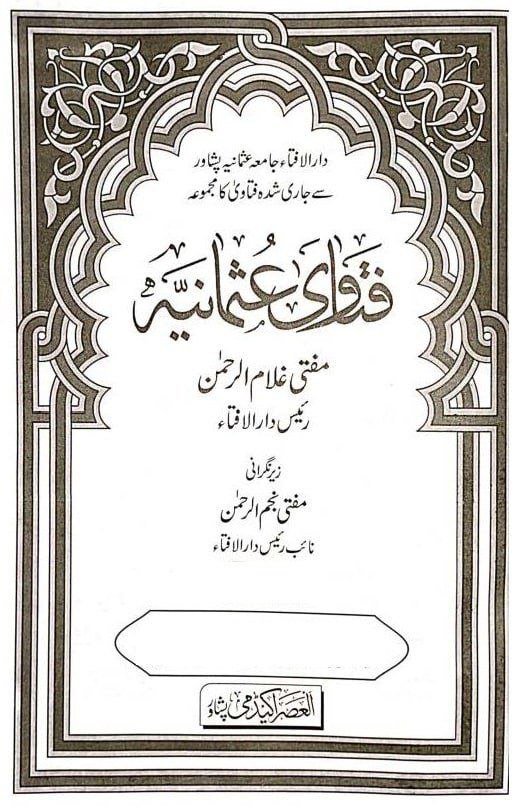 دارالافتاء جامعہ عثمانیہ پشاور
سے جاری شدہ فتاویٰ کا مجموعہ
فتاوای عُثمانیہ
مفتی غلام الرحمٰن
رئیس دارالافتاء
زیرنگرانی
مفتی نجم الرحمٰن
نائب رئیس دارالافتاء
العصر اکیڈمی پشاور